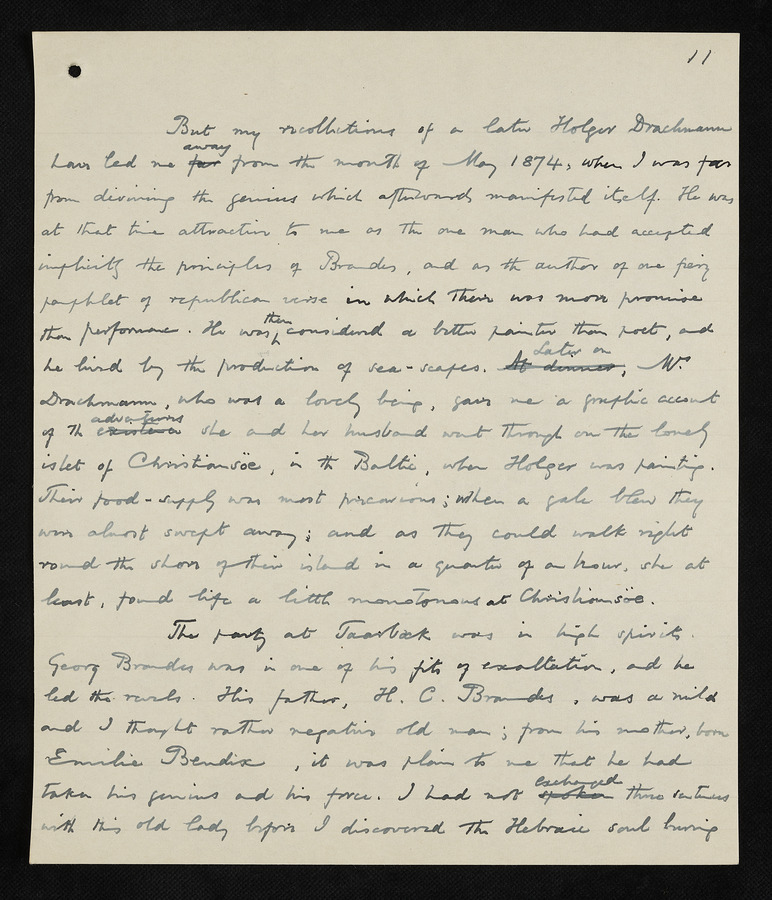 11
But my recollections of a later Holger Drachmann
away
have led me far from the month of May 1874, when I was far
from divining the genius which afterwards manifested itself. He was
at that time attractive to me as the one man who had accepted
implicitly the principles of Brandes, and as the author of one fiery
pamphlet of republican verse in which there was more promise
then
than performance. He was considered a better painter than poet, and
Later on
he lived by the production of sea-scapes. At dinner, Mrs
Drachmann, who was a lovely being, gave me a graphic account
adventures
of the existence she and her husband went through on the lonely
islet of Christiansöe, in the Baltic, when Holger was painting.
Their food-supply was most precarious; when a gale blew they
were almost swept away; and as they could walk right
round the shore of their island in a quarter of an hour, she at
least, found life a little monotonous at Christiansöe.
The party at Taarbæk was in high spirits.
Georg Brandes was in one of his fits of exaltation, and he
led the revels. His father, H. C. Brandes, was a mild
and I thought rather negative old man; from his mother, born
Emilie Bendix, it was plain to me that he had
exchanged
taken his genius and his force. I had not spoken three sentences
with this old lady before I discovered the Hebraic soul burning